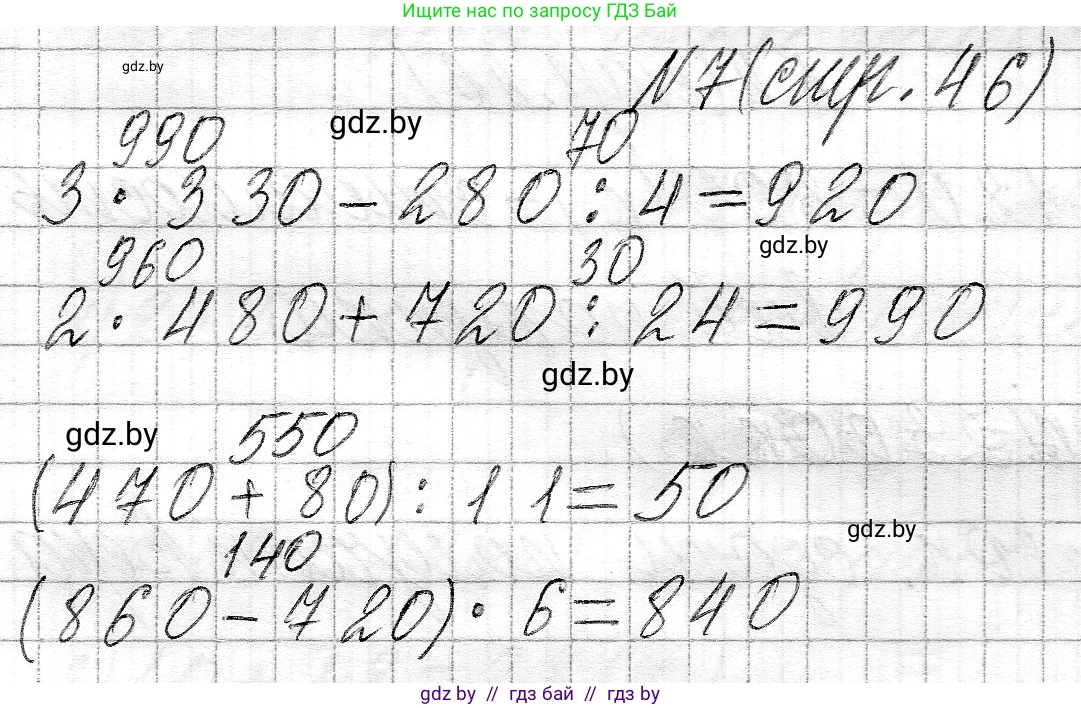 Ищите нас по запросу ГДЗ Бай
gdz.by
N7(стр. 46)
990 gdz.by 70
3 · 330 - 280 : 4 = 920
960 30 gdz.by
2 · 480 + 720 : 24 = 990
gdz.by
gdz.by 550
(470 + 80) : 11 = 50
140 gdz.by
(860 - 720) · 6 = 840
gdz by // гдз бай // гдз by